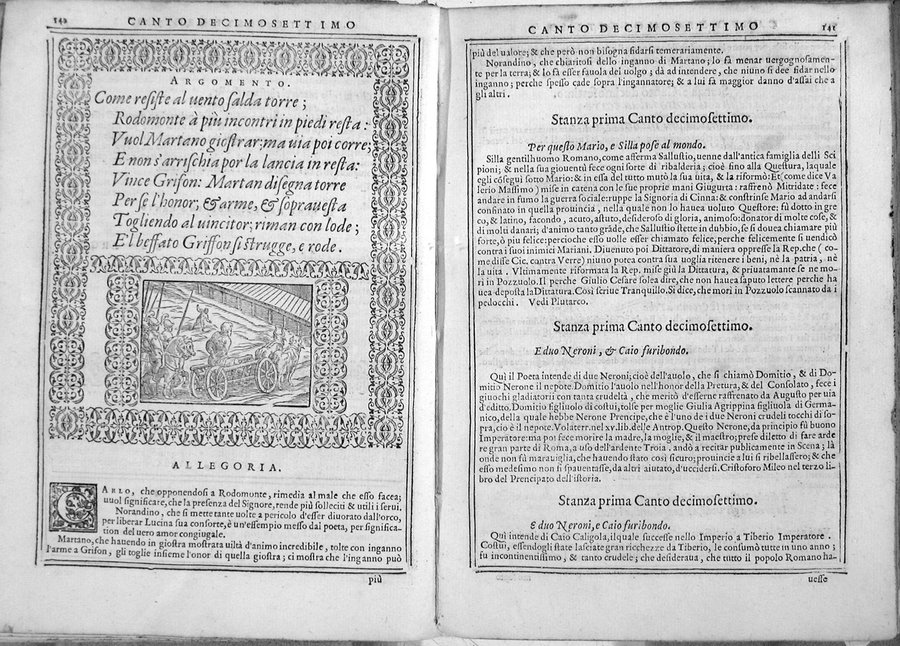 142 CANTO DECIMOSETTIMO
ARGOMENTO.
Come resiste al uento salda torre;
Rodomonte à piu incontri in piedi resta:
Vuol Martano giostrar: ma uia poi corre;
E non s'arrischia por la lancia in resta:
Vince Grifon: Martan disegna torre
Per se l'honor; & arme, & soprauesta
Togliendo al uincitor; riman con lode;
E'l beffato Griffon si strugge, e rode.
ALLEGORIA.
CARLO, che opponendosi a Rodomonte, rimedia al male che esso facea;
uuol significare, che la presenza del Signore, rende più solleciti & utili i serui.
Norandino, che si mette tante uolte a pericolo d'esser diuorato dall'orco,
per liberar Lucina sua consorte, è un'essempio messo dal poeta, per significa-
tion del uero amor congiugale.
Martano, che hauendo in giostra mostrata uiltà d'animo incredibile, tolte con inganno
l'arme a Grifon, gli toglie insieme l'onor di quella giostra; ci mostra che l'inganno può
più
CANTO DECIMOSETTIMO 141
più del ualore; & che però non bisogna fidarsi temerariamente.
Norandino, che chiaritosi dello inganno di Martano; lo fà menar uergognosamen-
te per la terra; & lo fà esser fauola del uolgo; dà ad intendere, che niuno si dee fidar nello
inganno; perche spesso cade sopra l'ingannatore; & a lui fa maggior danno d'assai che a
gli altri.
Stanza prima Canto decimosettimo.
Per questo Mario, e Silla pose al mondo.
Silla gentilhuomo Romano, come afferma Sallustio, uenne dall'antica famiglia delli Sci
pioni; & nella sua giouentù fece ogni sorte di ribalderia; cioè fino alla Questura, laquale
egli cōseguì sotto Mario: & in essa del tutto mutò la sua uita, & la riformò: Et (come dice Va
lerio Massimo) mise in catena con le sue proprie mani Giugurta: raffrenò Mitridate: fece
andare in fumo la guerra sociale: ruppe la Signoria di Cinna: & constrinse Mario ad andarsi
confinato in quella prouincia, nella quale non lo hauea uoluto Questore: fù dotto in gre
co, & latino, facondo, acuto, astuto, desideroso di gloria, animoso: donator di molte cose, &
di molti danari; d'animo tanto grāde, che Sallustio stette in dubbio, se si douea chiamare più
forte, ò piu felice: percioche esso uolle esser chiamato felice, perche felicemente si uendicò
contra i suoi inimici Mariani. Diuenuto poi Dittatore, di maniera oppresse la Rep. che (co
me disse Cic. contra Verre) niuno potea contra sua uoglia ritenere i beni, nè la patria, nè
la uita. Vltimamente riformata la Rep. mise giù la Dittatura, & priuatamente se ne mo-
rì in Pozzuolo. Il perche Giulio Cesare solea dire, che non hauea saputo lettere perche ha
uea deposta la Dittatura. Così scriue Tranquillo. Si dice, che morì in Pozzuolo scannato da i
pedocchi. Vedi Plutarco.
Stanza prima Canto decimosettimo.
E duo Neroni, & Caio furibondo.
Quì il Poeta intende di due Neroni; cioè dell'auolo, che si chiamò Domitio, & di Do-
mitio Nerone il nepote. Domitio l'auolo nell'honor della Pretura, & del Consolato, fece i
giuochi gladiatorii con tanta crudeltà, che meritò d'esserne raffrenato da Augusto per uia
d'editto. Domitio figliuolo di costui, tolse per moglie Giulia Agrippina figliuola di Germa-
nico, della quale hebbe Nerone Prencipe, che è l'uno de i due Neroni crudeli tocchi di so-
pra, ciò è il nepote. Volaterr. nel xv. lib. delle Antrop. Questo Nerone, da principio fù buono
Imperatore: ma poi fece morire la madre, la moglie, & il maestro; prese diletto di fare arde
re gran parte di Roma, a uso dell'ardente Troia. andò a recitar publicamente in Scena; là
onde non fù marauiglia, che hauendo stato così sicuro; prouincie a lui si ribellassero; & che
esso medesimo non si spauentasse, da altri aiutato, d'uccidersi. Cristoforo Mileo nel terzo li
bro del Prencipato dell'istoria.
Stanza prima Canto decimosettimo.
E duo Neroni, e Caio furibondo.
Quì intende di Caio Caligola, il quale successe nello Imperio a Tiberio Imperatore.
Costui, essendogli state lasciate gran ricchezze da Tiberio, le consumò tutte in uno anno;
fu incontinentissimo, & tanto crudele; che desideraua, che tutto il popolo Romano ha-
uesse